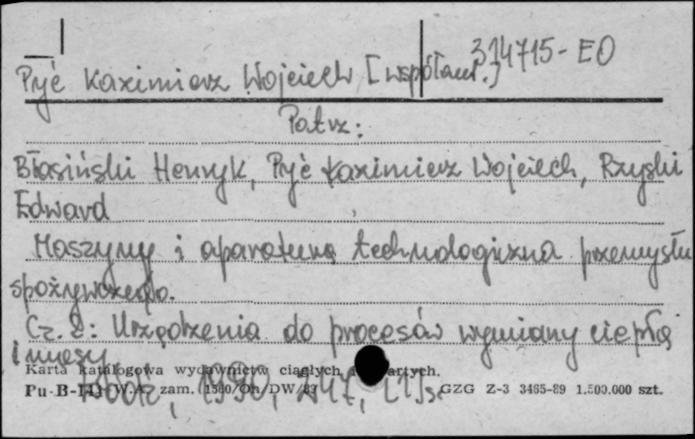 314715-EO
Pyć Kazimierz Wojciech [współaut.]
Patrz:
Błasiński Henryk, Pyć Kazimierz Wojciech, Rzyski
Edward
Maszyny i aparatura technologiczna przemysłu
spożywczego.
Cz. 2: Urządzenia do procesów wymiany ciepła
i masy
Karta katalogowa wydawnictw ciągłych i zwartych.
Łódź, 1990, 247, [1] s.
Pu-B-141 W.A. zam. 1580/On/DW/87 GZG Z-3 3465-89 1.500.000 szt.